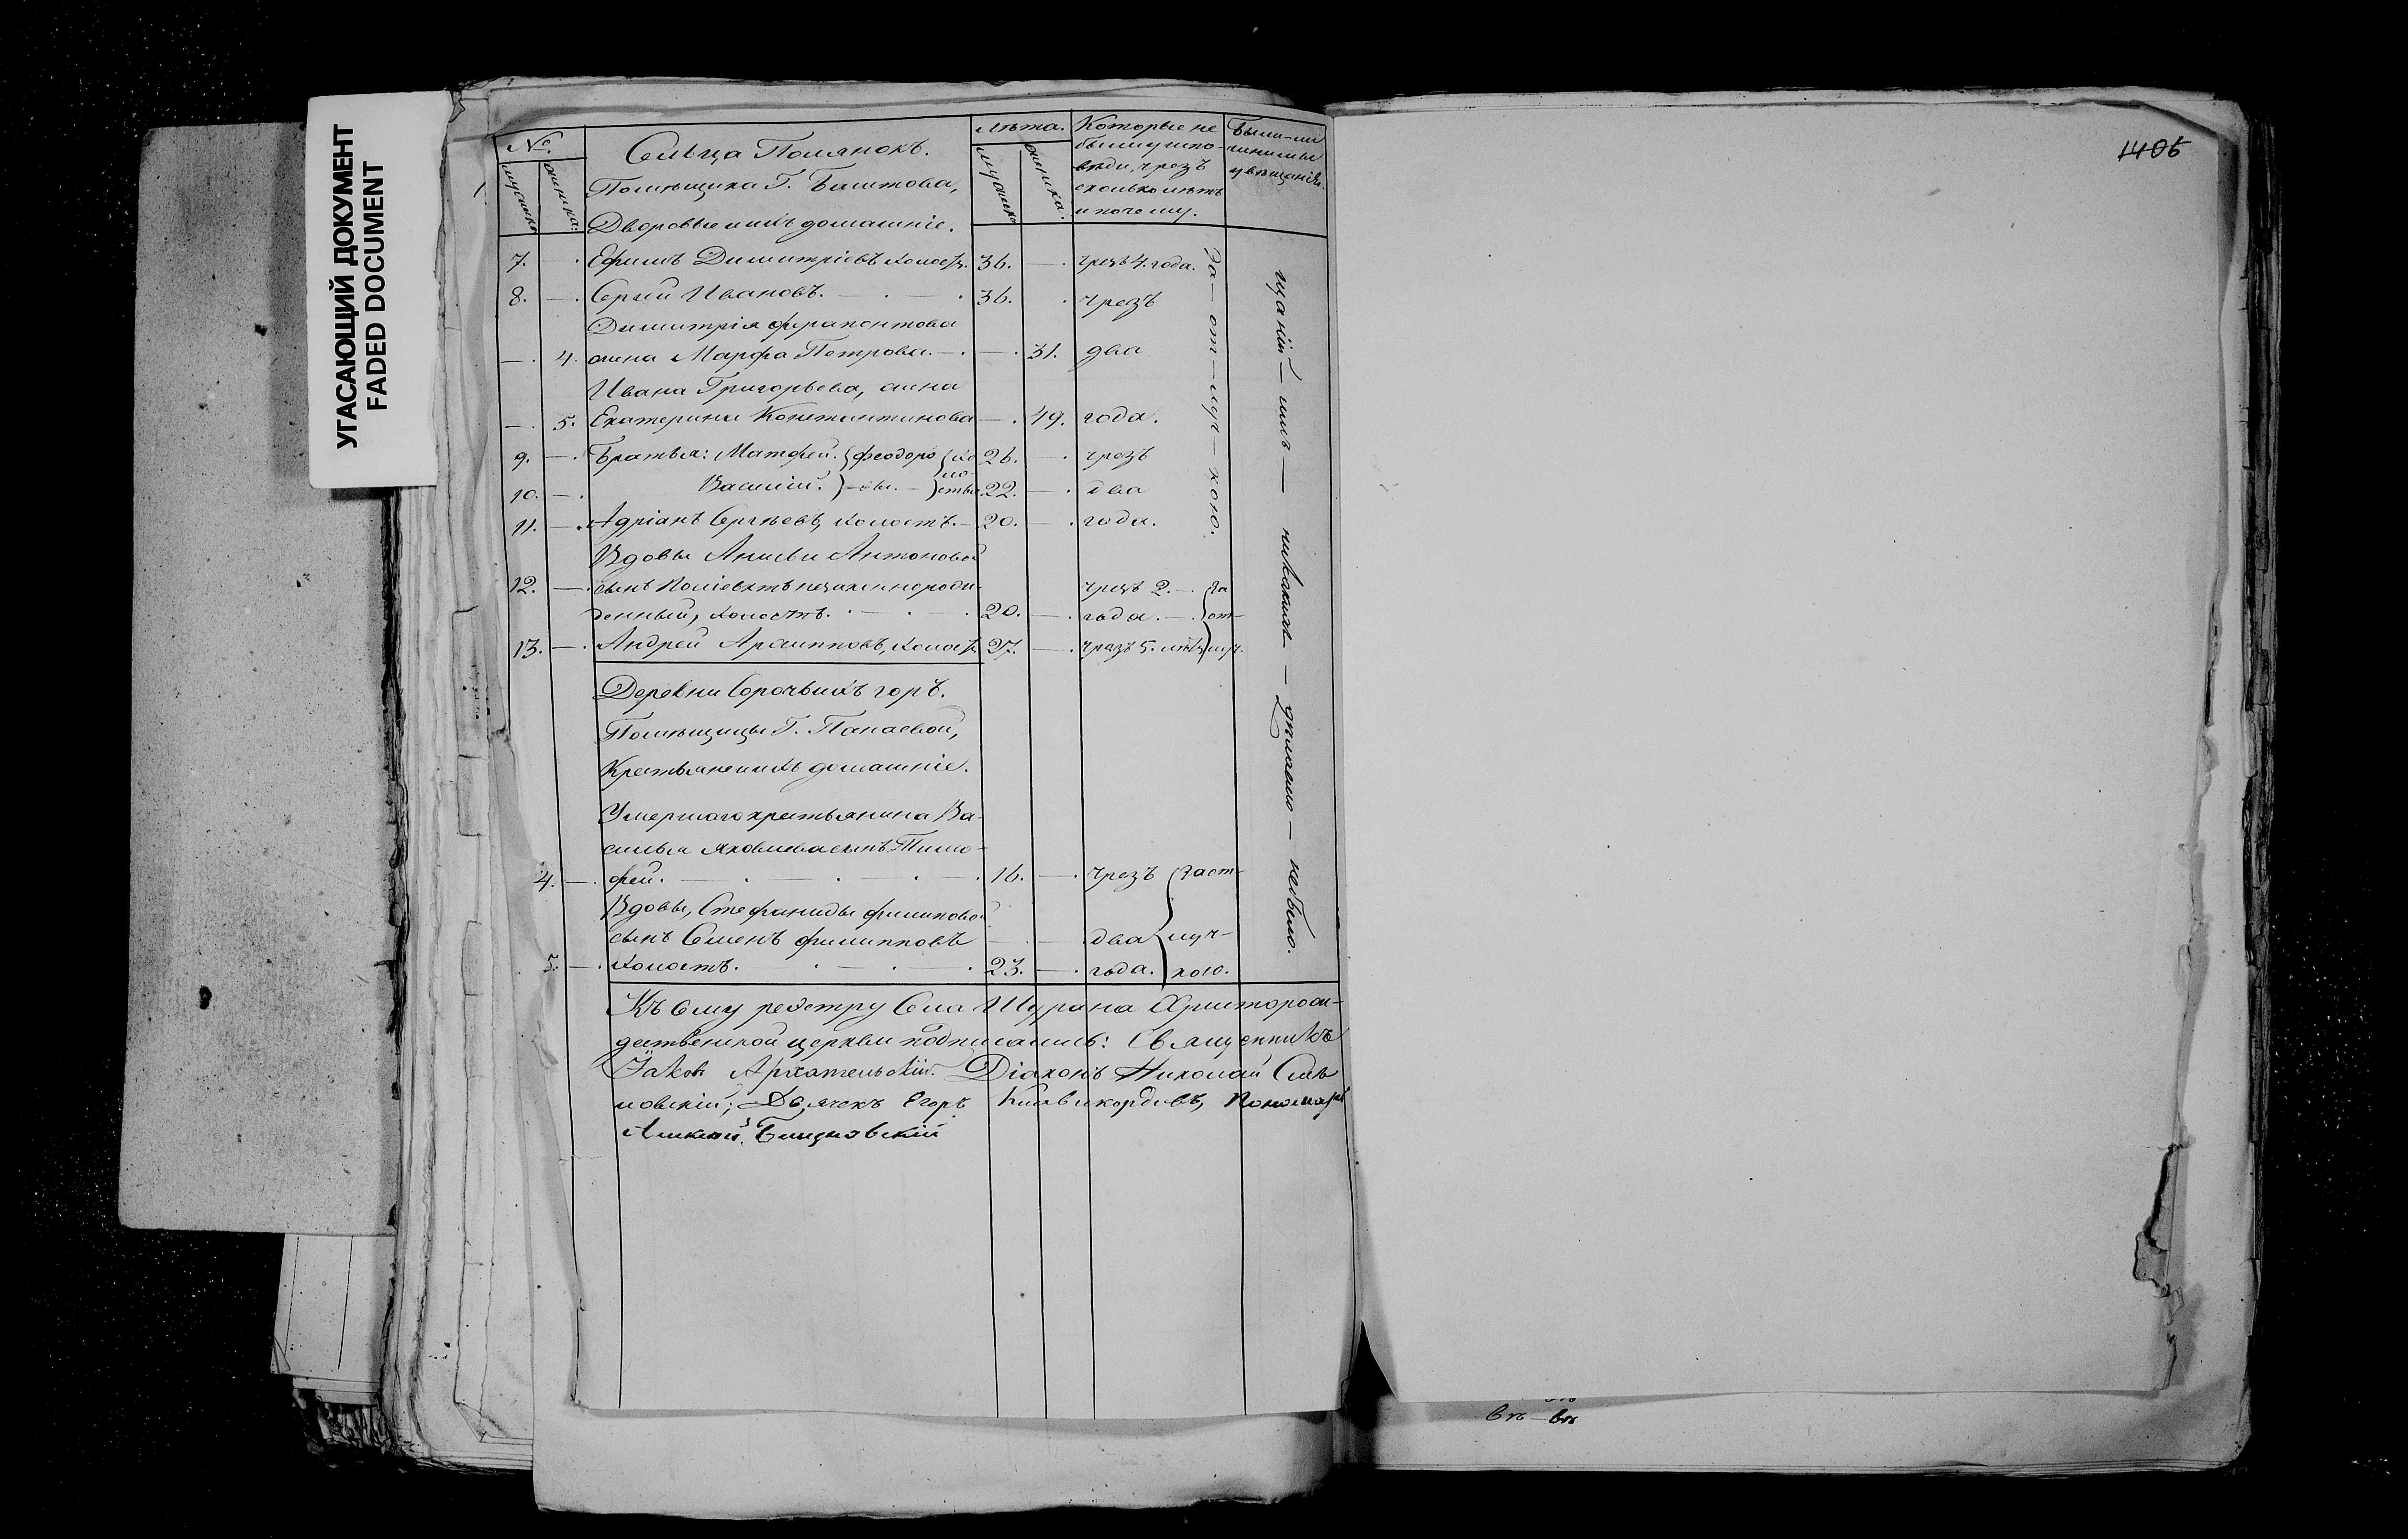 УГАСАЮЩИЙ ДОКУМЕНТ
FADED DOCUMENT
1406
№.
мужска
женска:
Сельца Полянокъ.
Помѣщика Г.
Дворовые и ихъ домашніе.
лѣта.
мужска
женска.
Которые не
были у испо-
вѣди, чрезъ
сколько лѣтъ
и почему.
Были-ли
чинимы
увѣщанія.
7. — . Ефимъ Димитріевъ холостъ. 36. — . чрезъ 4. года.
8. — . Сергій Ивановъ. — . — . 36. . чрезъ
Димитрія Ферапонтова
— . 4. жена Марфа Петрова. — . — . 31. два
Ивана Григорьева, жена
— . 5. Екатерина Константинова — . 49. года.
9. — . Братья: Матфей. Феодоро 26. — . чрезъ
10. — . Василій. — вы. — 22. — . два
11. — . Адріанъ Сергѣевъ, холостъ. — 20. — . года.
За — от — луч — кою.
Вдовы Антоновой
12. — . сынъ незаконнорож- чрезъ 2. — . за
денный, холостъ. . — . — . 20. — . года. — . от-
13. — . Андрей Архипповъ, холостъ. 27. — . чрезъ 5. лѣтъ луч.
Деревни Сорочьихъ горъ.
Помѣщицы Г. Панаевой,
Крестьяне и ихъ домашніе.
Умершаго крестьянина Ва-
силья Яковлева сынъ Тимо-
4. — . фей. — . — . — . — . 16. — . чрезъ за от-
Вдовы, Стефаниды Филиповой
сынъ Семенъ Филипповъ — . — два луч-
5. — . холостъ. — . — . — . 23. — . года. кою.
щаній — имъ — никакихъ — дѣлаемо — небыло.
Къ сему реэстру Села Шурана Христорож-
дественской церкви подписались: Священникъ
Іаковъ Архангельскій. Діаконъ Николай
Дьячекъ Егоръ Пономарь
Алексѣй